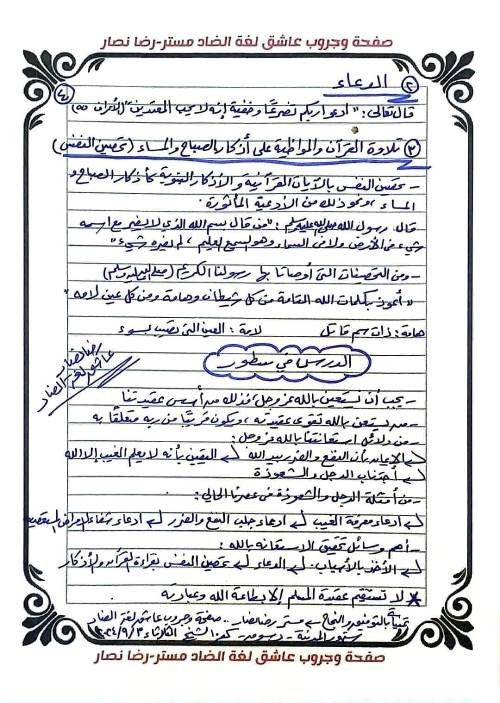 صفحة وجروب عاشق لغة الضاد مستر-رضا نصار
② الدعاء
قال تعالى: "ادعوا ربكم تضرعًا وخفية إنه لا يحب المعتدين" (الأعراف ٥٥)
③ تلاوة القرآن والمواظبة على أذكار الصباح والمساء (تحصين النفس)
- تحصين النفس بالآيات القرآنية والأذكار النبوية كأذكار الصباح و
المساء، ونحو ذلك من الأدعية المأثورة.
قال رسول الله صلى الله عليه وسلم: "من قال بسم الله الذي لا يضر مع اسمه
شيء في الأرض ولا في السماء وهو السميع العليم، لم يضره شيء"
- ومن التحصينات التي أوصانا بها رسولنا الكريم (صلى الله عليه وسلم)
"أعوذ بكلمات الله التامة من كل شيطان وهامة ومن كل عين لامة"
هامة: ذات سم قاتل لامة: العين التي تصيب بسوء
الدرس في سطور
رضا نصار
عاشق لغة الضاد
- يجب أن نستعين بالله عز وجل، فذلك من أسس عقيدتنا
- من يستعن بالله تقوى عقيدته، ويكون قريبًا من ربه متعلقًا به
- من دلائل استعانتنا بالله عز وجل:
الإيمان بأن النفع والضر بيد الله اليقين بأنه لا يعلم الغيب إلا الله
اجتناب الدجل والشعوذة
- من أمثلة الدجل والشعوذة في عصرنا الحالي:
ادعاء معرفة الغيب ادعاء جلب النفع والضرر ادعاء شفاء الأمراض المستعصية
- أهم وسائل تحقيق الاستعانة بالله:
الأخذ بالأسباب الدعاء تحصين النفس بقراءة القرآن والأذكار
* لا تستقيم عقيدة المسلم إلا بطاعة الله وعبادته
بالتوفيق والنجاح مستر رضا نصار .. صفحة وجروب عاشق لغة الضاد
دسوق - كفر الشيخ الثلاثاء ٢٠٢٤/٩/٣
صفحة وجروب عاشق لغة الضاد مستر-رضا نصار